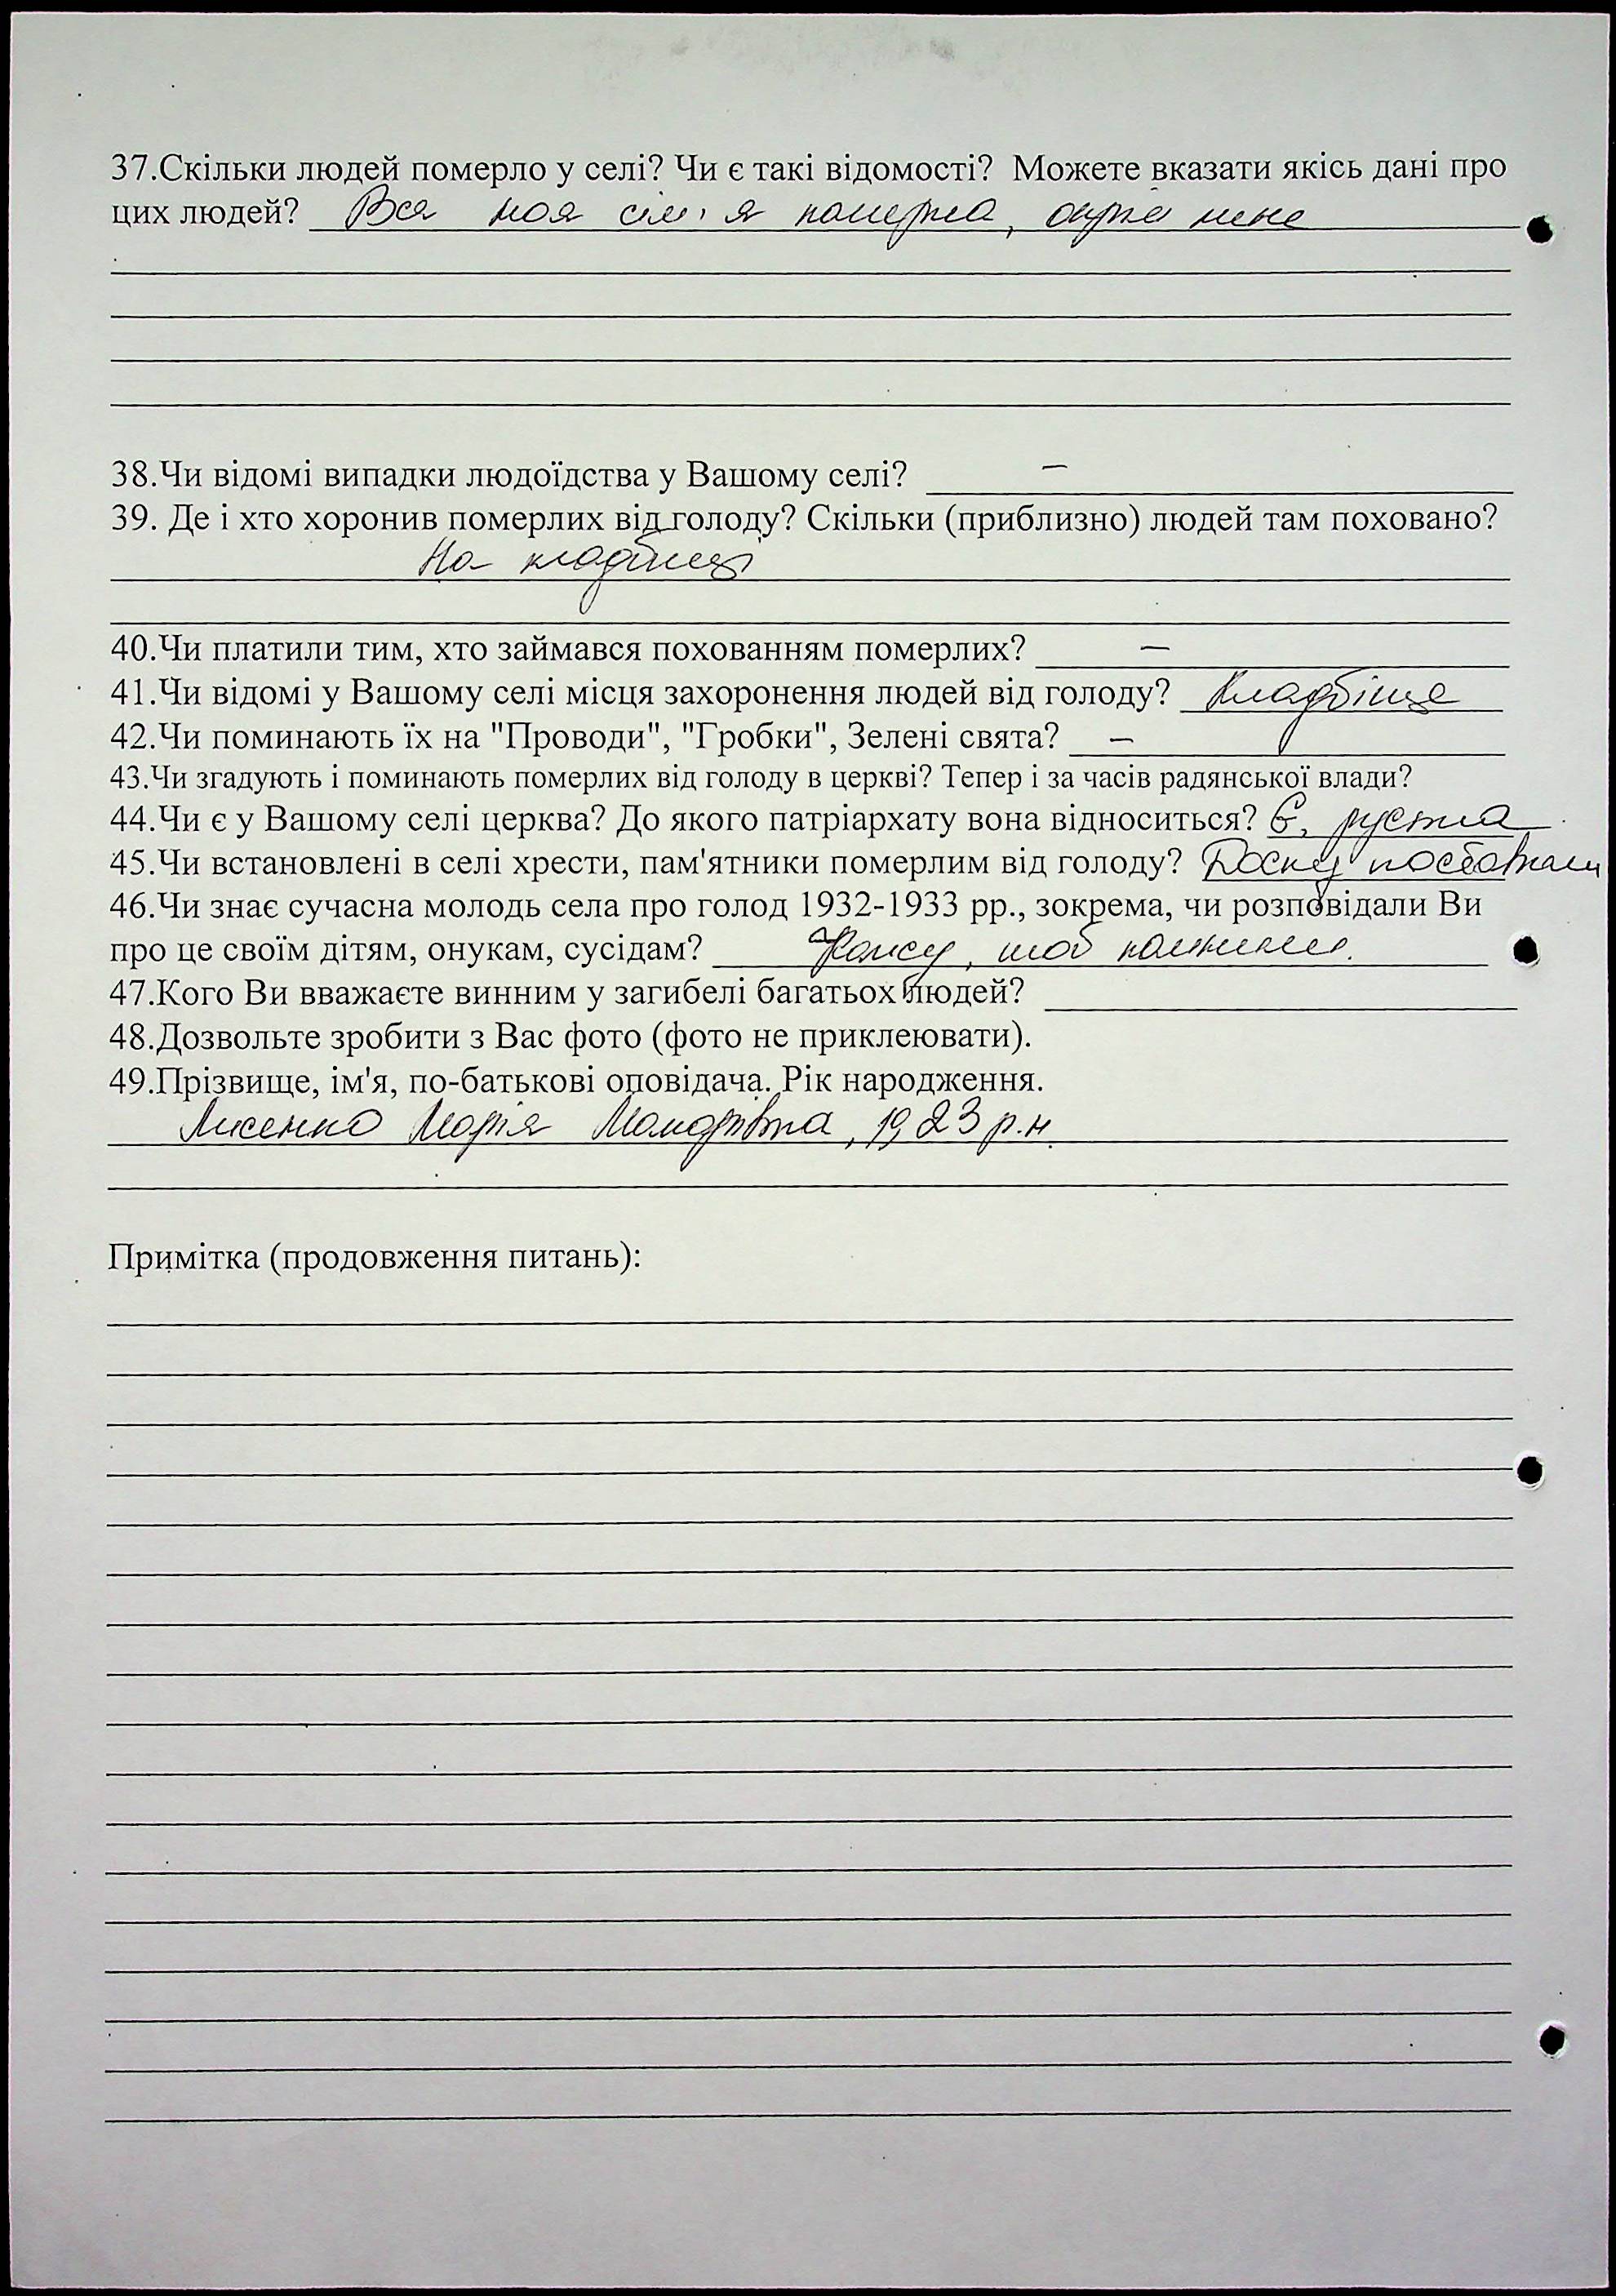 37.Скільки людей померло у селі? Чи є такі відомості? Можете вказати якісь дані про
цих людей? Вся моя сім'я померла, окрім мене
38.Чи відомі випадки людоїдства у Вашому селі? –
39. Де і хто хоронив померлих від голоду? Скільки (приблизно) людей там поховано?
На кладбищі
40.Чи платили тим, хто займався похованням померлих? –
41.Чи відомі у Вашому селі місця захоронення людей від голоду? Кладбіще
42.Чи поминають їх на "Проводи", "Гробки", Зелені свята? –
43.Чи згадують і поминають померлих від голоду в церкві? Тепер і за часів радянської влади?
44.Чи є у Вашому селі церква? До якого патріархату вона відноситься? Є, руська
45.Чи встановлені в селі хрести, пам'ятники померлим від голоду? Доску поставили
46.Чи знає сучасна молодь села про голод 1932-1933 рр., зокрема, чи розповідали Ви
про це своїм дітям, онукам, сусідам? Кажу, щоб
47.Кого Ви вважаєте винним у загибелі багатьох людей?
48.Дозвольте зробити з Вас фото (фото не приклеювати).
49.Прізвище, ім'я, по-батькові оповідача. Рік народження.
Лисенко Марія 1923 р.н.
Примітка (продовження питань):